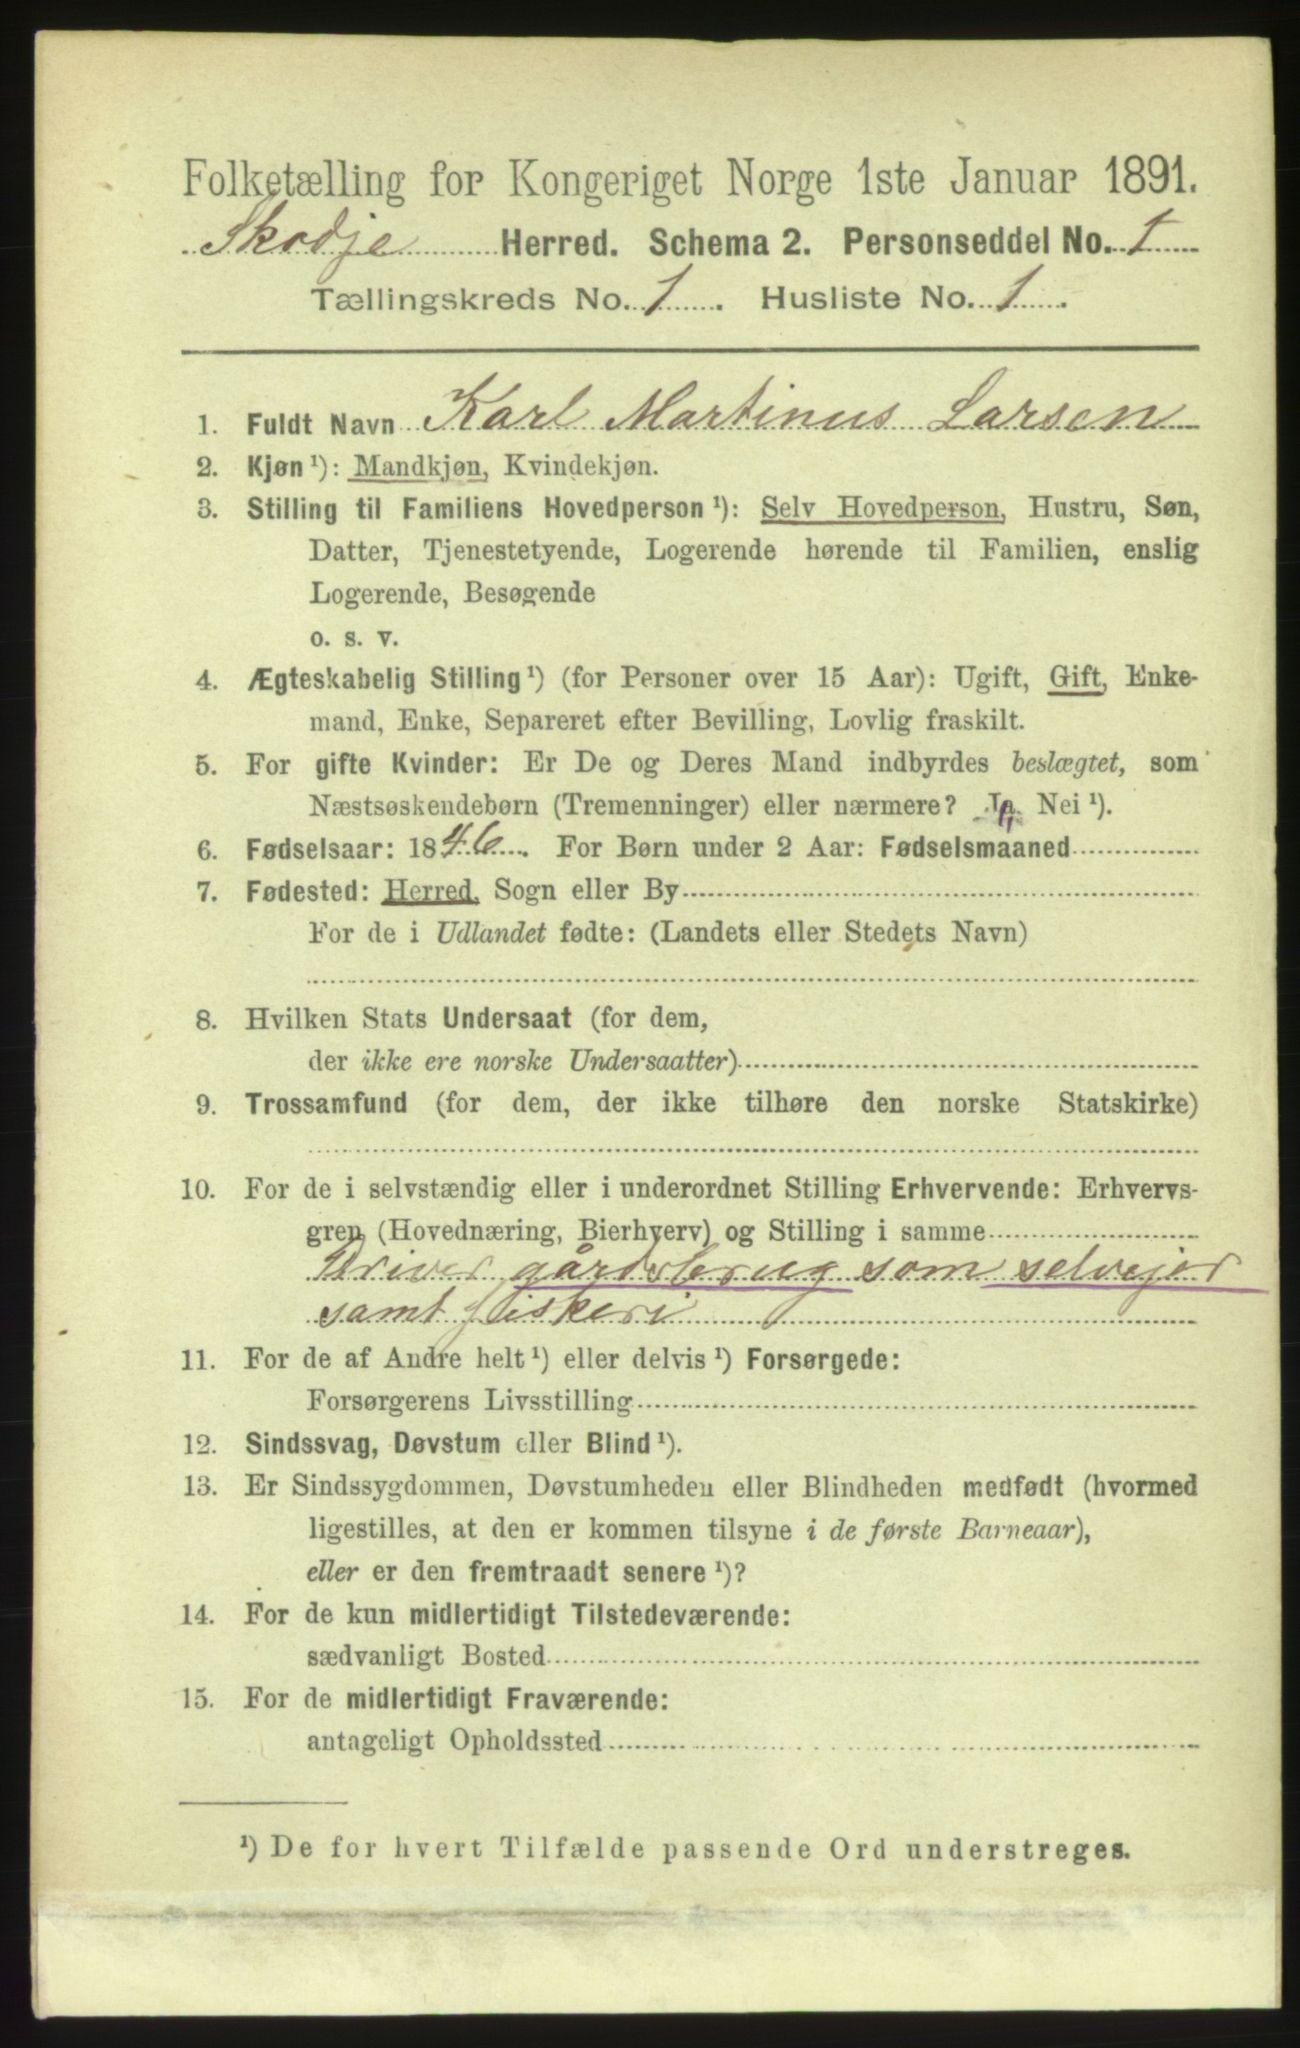 Folketælling for Kongeriget Norge 1ste Januar 1891.
Skodje Herred. Schema 2. Personseddel No. 1
Tællingskreds No. 1. Husliste No. 1.
1. Fuldt Navn Karl Martinus Larsen
2. Kjøn¹): Mandkjøn, Kvindekjøn.
3. Stilling til Familiens Hovedperson¹): Selv Hovedperson, Hustru, Søn,
Datter, Tjenestetyende, Logerende hørende til Familien, enslig
Logerende, Besøgende
o. s. v.
4. Ægteskabelig Stilling¹) (for Personer over 15 Aar): Ugift, Gift, Enke-
mand, Enke, Separeret efter Bevilling, Lovlig fraskilt.
5. For gifte Kvinder: Er De og Deres Mand indbyrdes beslægtet, som
Næstsøskendebørn (Tremenninger) eller nærmere? Ja Nei¹).
6. Fødselsaar: 1846. For Børn under 2 Aar: Fødselsmaaned
7. Fødested: Herred, Sogn eller By
For de i Udlandet fødte: (Landets eller Stedets Navn)
8. Hvilken Stats Undersaat (for dem,
der ikke ere norske Undersaatter)
9. Trossamfund (for dem, der ikke tilhøre den norske Statskirke)
10. For de i selvstændig eller i underordnet Stilling Erhvervende: Erhvervs-
gren (Hovednæring, Bierhverv) og Stilling i samme
Driver gårdsbrug som selvejer
samt fiskeri
11. For de af Andre helt¹) eller delvis¹) Forsørgede:
Forsørgerens Livsstilling
12. Sindssvag, Døvstum eller Blind¹).
13. Er Sindssygdommen, Døvstumheden eller Blindheden medfødt (hvormed
ligestilles, at den er kommen tilsyne i de første Barneaar),
eller er den fremtraadt senere¹)?
14. For de kun midlertidigt Tilstedeværende:
sædvanligt Bosted
15. For de midlertidigt Fraværende:
antageligt Opholdssted
¹) De for hvert Tilfælde passende Ord understreges.